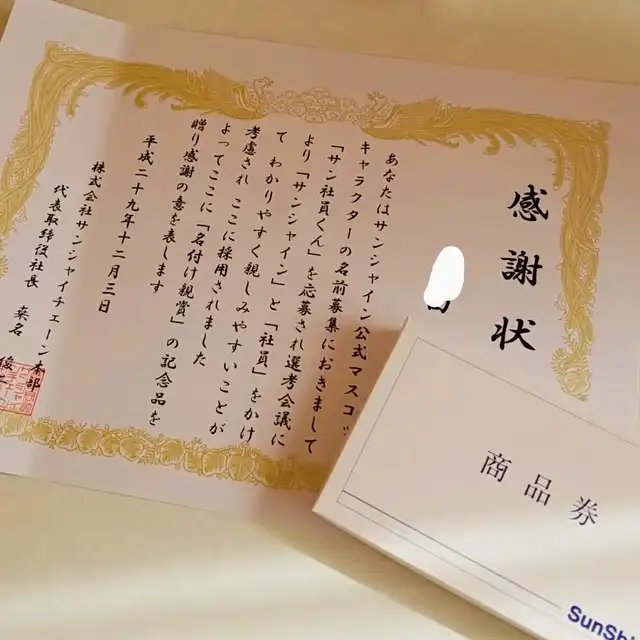 感謝状
あなたはサンシャイン公式マスコッ
キャラクターの名前募集におきまして
「サン社員くん」を応募され選考会議に
て わかりやすく「サンシャイン」と「社員」をかけ
考慮され 親しみやすいことが
よってここに採用されました
「名付け親賞」の記念品を
贈り感謝の意を表します
平成二十九年十二月三日
株式会社サンシャイチェーン本部
代表取締役社長 桒名 俊二
商品券
SunSh